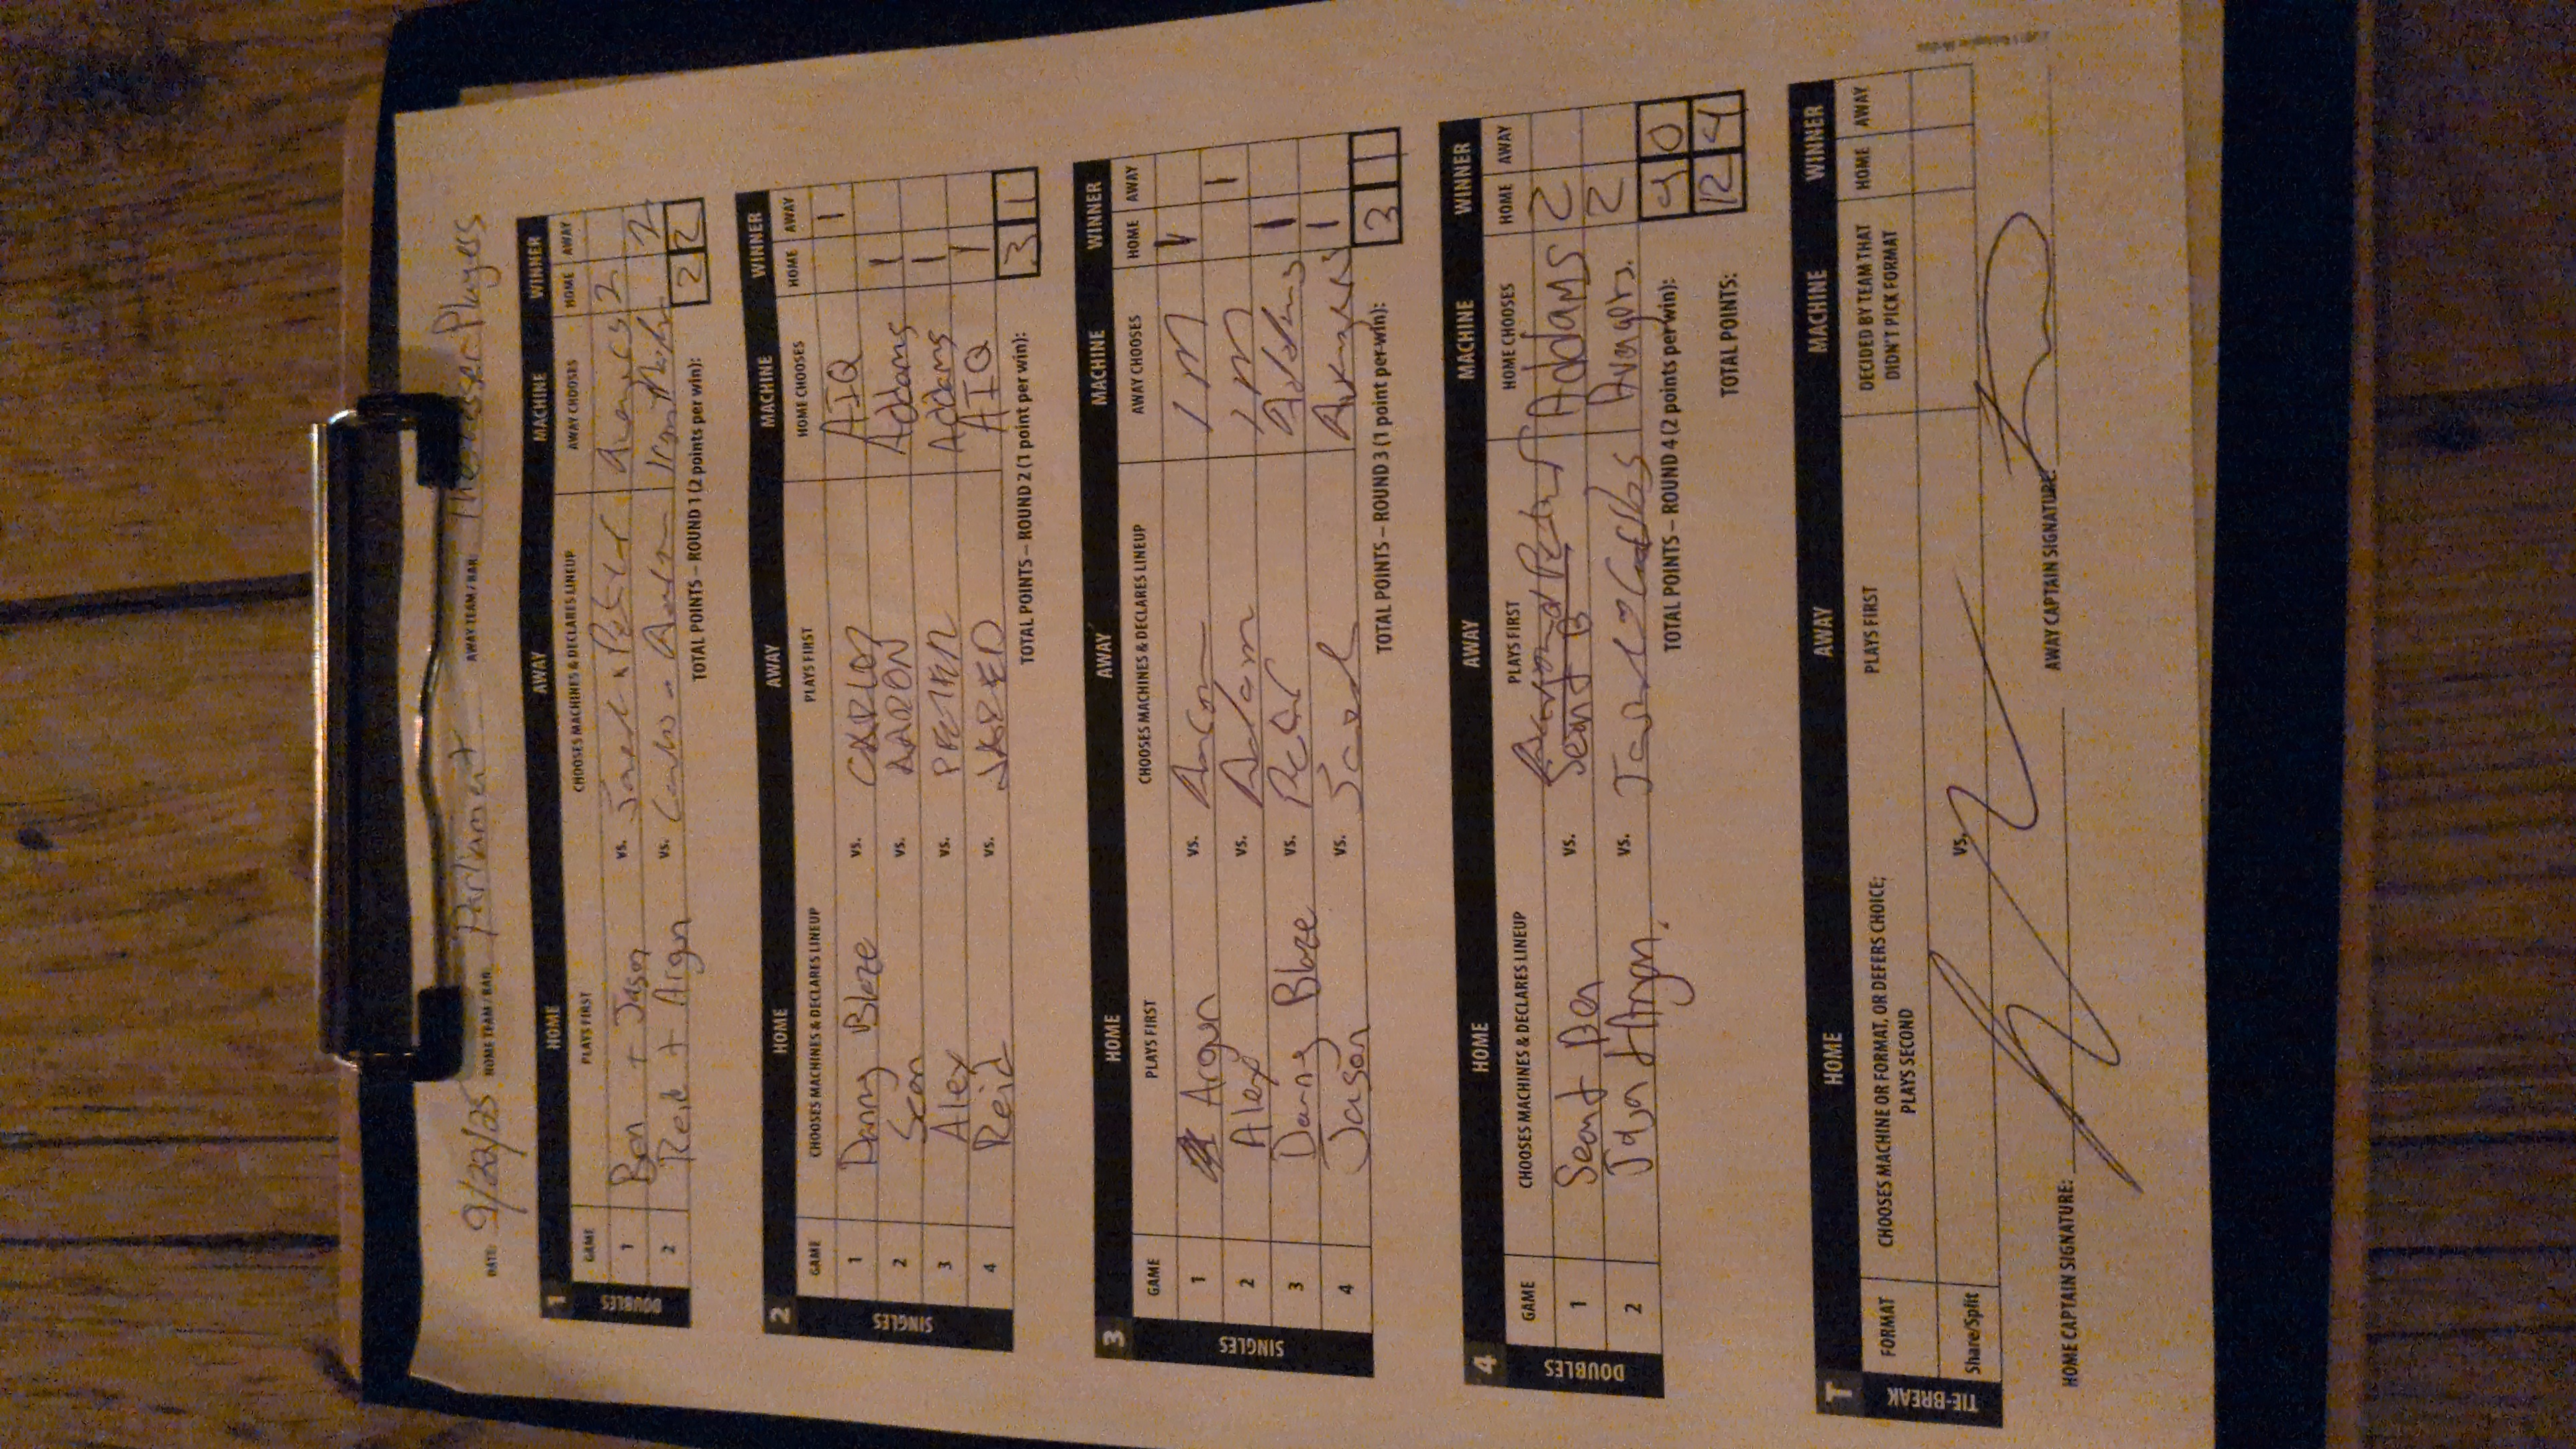 DATE: 9/22/25 HOME TEAM / BAR: Parliament AWAY TEAM / BAR: Players
1 HOME AWAY MACHINE WINNER
GAME PLAYS FIRST CHOOSES MACHINES & DECLARES LINEUP AWAY CHOOSES HOME AWAY
DOUBLES
1 Ben + Jason vs. Jared x Peter 2
2 Reid + Argn vs. Carlos - Aaron 2
TOTAL POINTS – ROUND 1 (2 points per win): 2 2
2 HOME AWAY MACHINE WINNER
GAME CHOOSES MACHINES & DECLARES LINEUP PLAYS FIRST HOME CHOOSES HOME AWAY
SINGLES
1 Danny Blaze vs. CARLOS AIQ 1
2 Sean vs. AARON Addams 1
3 Alex vs. PETER Addams 1
4 Reid vs. JARED AIQ 1
TOTAL POINTS – ROUND 2 (1 point per win): 3 1
3 HOME AWAY MACHINE WINNER
GAME PLAYS FIRST CHOOSES MACHINES & DECLARES LINEUP AWAY CHOOSES HOME AWAY
SINGLES
1 Argun vs. IM 1
2 Alex vs. Adam IM 1
3 Danny Blaze vs. Peter Addams 1
4 Jason vs. Jared Avengers 1
TOTAL POINTS – ROUND 3 (1 point per win): 3 1
4 HOME AWAY MACHINE WINNER
GAME CHOOSES MACHINES & DECLARES LINEUP PLAYS FIRST HOME CHOOSES HOME AWAY
DOUBLES
1 Sean + Ben vs. Peter Addams 2
2 vs. Jared Carlos Avengers. 2
TOTAL POINTS – ROUND 4 (2 points per win): 4 0
TOTAL POINTS: 12 4
T HOME AWAY MACHINE WINNER
FORMAT CHOOSES MACHINE OR FORMAT, OR DEFERS CHOICE; PLAYS SECOND PLAYS FIRST DECIDED BY TEAM THAT DIDN'T PICK FORMAT HOME AWAY
TIE-BREAK
Share/Split vs.
HOME CAPTAIN SIGNATURE: AWAY CAPTAIN SIGNATURE: